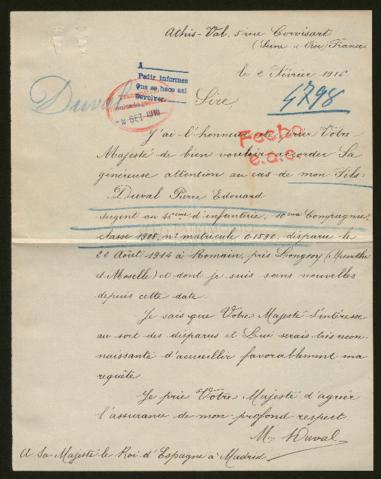 Athis-Val, 5 rue Corvisart
(Seine et Oise) France
le 2 Février 1916
A
Pedir informes
que se hace así
devolver.
Duval
4798
Sire,
Fecho
J'ai l'honneur de prier Votre
Majesté de bien vouloir accorder Sa
généreuse attention au cas de mon fils
Duval Pierre Edouard
sergent au 45ème d'infanterie, Compagnie,
classe 1908, n° matricule 01590, disparu le
22 Août 1914 à Romain, près Longwy (Meurthe
et Moselle) et dont je suis sans nouvelles
depuis cette date.
Je sais que Votre Majesté s'intéresse
au sort des disparus et Lui serais très recon-
naissant d'accueillir favorablement ma
requête.
Je prie Votre Majesté d'agréer
l'assurance de mon profond respect
Duval
A Sa Majesté le Roi d'Espagne à Madrid